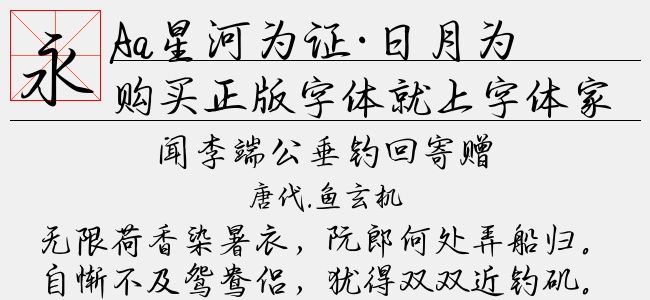 永
Aa星河为证·日月为
购买正版字体就上字体家
闻李端公垂钓回寄赠
唐代.鱼玄机
无限荷香染暑衣，阮郎何处弄船归。
自惭不及鸳鸯侣，犹得双双近钓矶。